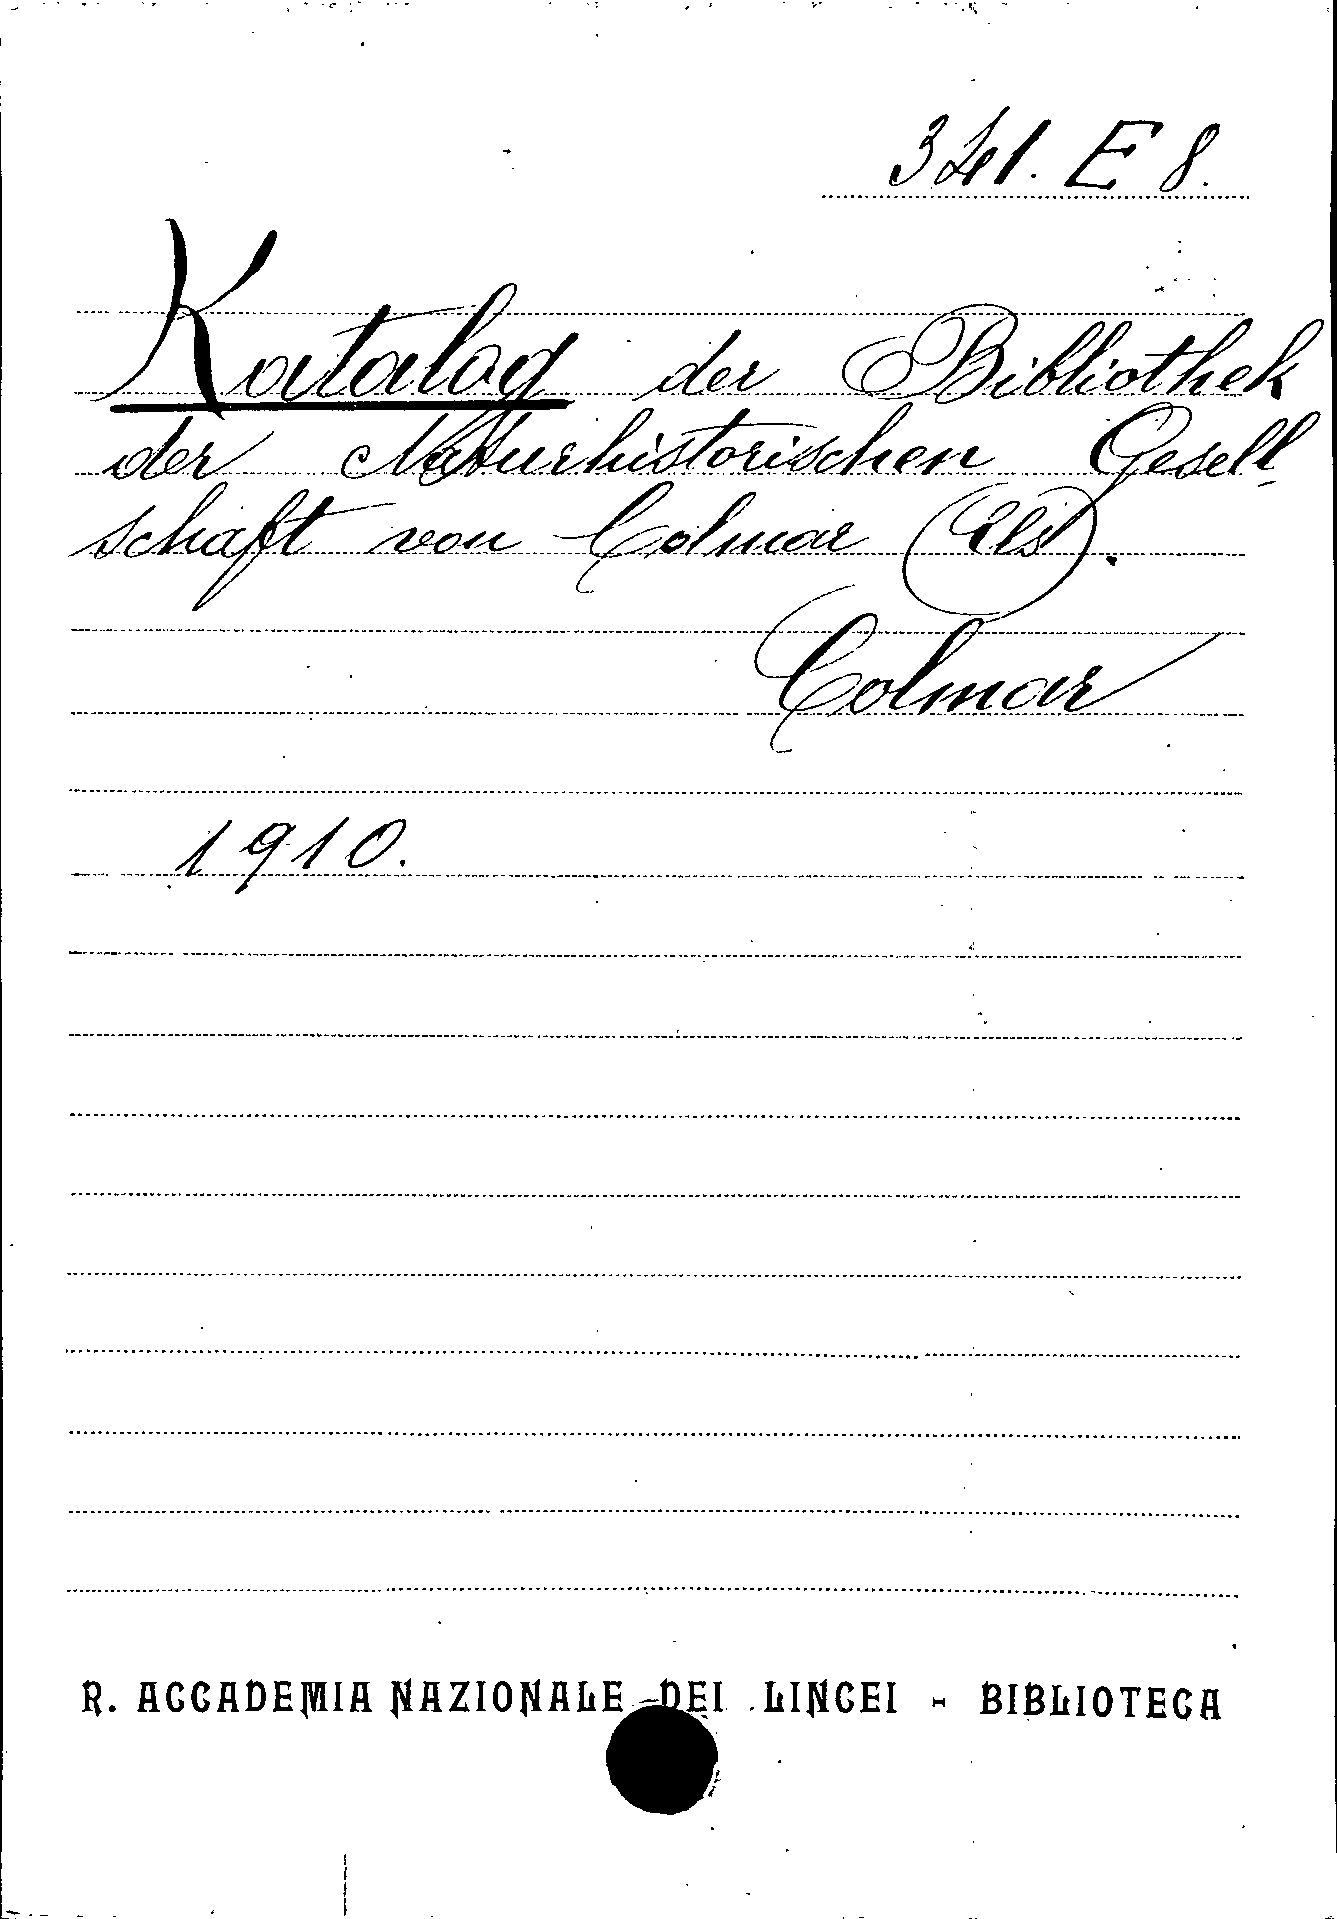 341. E 8.
Katalog der Bibliothek
der Naturhistorischen Gesell-
schaft von Colmar (Els).
Colmar
1910.
R. ACCADEMIA NAZIONALE DEI LINCEI - BIBLIOTECA